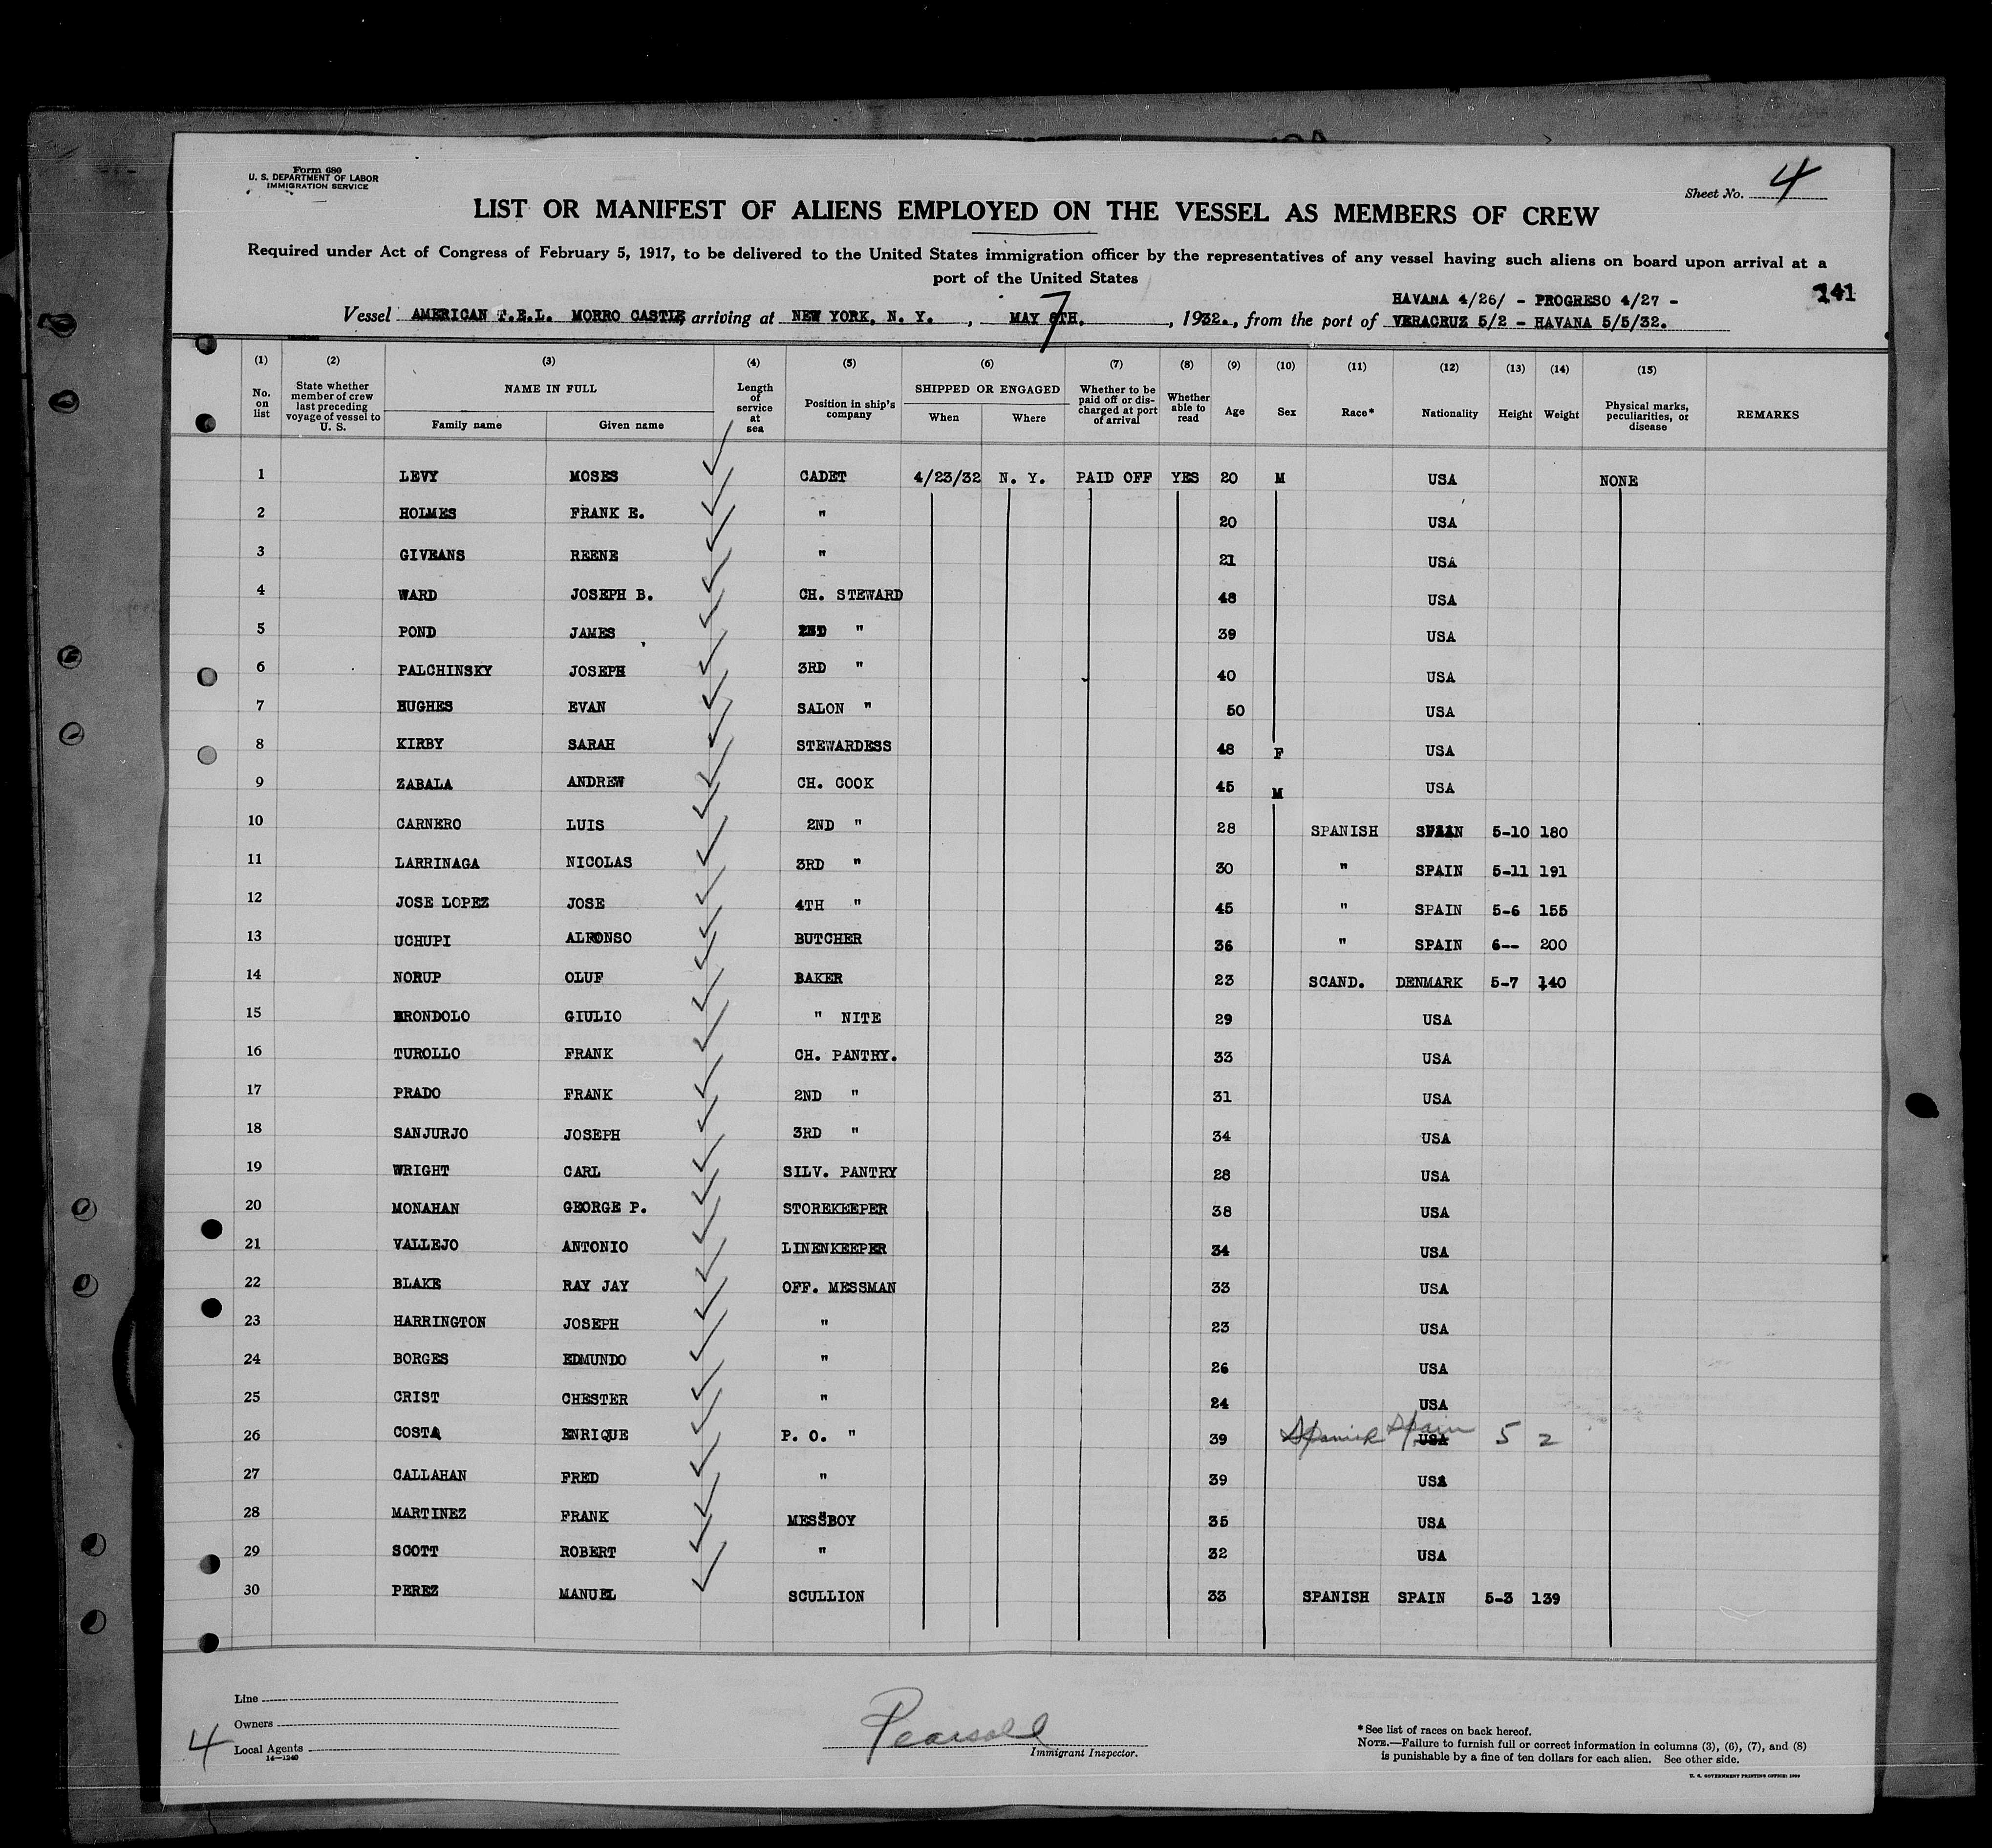 Form 680
U. S. DEPARTMENT OF LABOR
IMMIGRATION SERVICE
Sheet No. 4
LIST OR MANIFEST OF ALIENS EMPLOYED ON THE VESSEL AS MEMBERS OF CREW
Required under Act of Congress of February 5, 1917, to be delivered to the United States immigration officer by the representatives of any vessel having such aliens on board upon arrival at a
port of the United States
HAVANA 4/26/ - PROGRESO 4/27 - 141
Vessel AMERICAN T.E.L. MORRO CASTLE, arriving at NEW YORK, N. Y., MAY 7 TH., 1932., from the port of VERACRUZ 5/2 - HAVANA 5/5/32.
(1) (2) (3) (4) (5) (6) (7) (8) (9) (10) (11) (12) (13) (14) (15)
No. on list State whether member of crew last preceding voyage of vessel to U. S. NAME IN FULL Family name Given name Length of service at sea Position in ship's company SHIPPED OR ENGAGED When Where Whether to be paid off or discharged at port of arrival Whether able to read Age Sex Race* Nationality Height Weight Physical marks, peculiarities, or disease REMARKS
1 LEVY MOSES CADET 4/23/32 N. Y. PAID OFF YES 20 M USA NONE
2 HOLMES FRANK E. " 20 USA
3 GIVEANS REENE " 21 USA
4 WARD JOSEPH B. CH. STEWARD 48 USA
5 POND JAMES 2ND " 39 USA
6 PALCHINSKY JOSEPH 3RD " 40 USA
7 HUGHES EVAN SALON " 50 USA
8 KIRBY SARAH STEWARDESS 48 F USA
9 ZABALA ANDREW CH. COOK 45 M USA
10 CARNERO LUIS 2ND " 28 SPANISH SPAIN 5-10 180
11 LARRINAGA NICOLAS 3RD " 30 " SPAIN 5-11 191
12 JOSE LOPEZ JOSE 4TH " 45 " SPAIN 5-6 155
13 UCHUPI ALFONSO BUTCHER 36 " SPAIN 6-- 200
14 NORUP OLUF BAKER 23 SCAND. DENMARK 5-7 140
15 BRONDOLO GIULIO " NITE 29 USA
16 TUROLLO FRANK CH. PANTRY. 33 USA
17 PRADO FRANK 2ND " 31 USA
18 SANJURJO JOSEPH 3RD " 34 USA
19 WRIGHT CARL SILV. PANTRY 28 USA
20 MONAHAN GEORGE P. STOREKEEPER 38 USA
21 VALLEJO ANTONIO LINENKEEPER 34 USA
22 BLAKE RAY JAY OFF. MESSMAN 33 USA
23 HARRINGTON JOSEPH " 23 USA
24 BORGES EDMUNDO " 26 USA
25 CRIST CHESTER " 24 USA
26 COSTA ENRIQUE P. O. " 39 Spanish Spain USA 5 2
27 CALLAHAN FRED " 39 USA
28 MARTINEZ FRANK MESSBOY 35 USA
29 SCOTT ROBERT " 32 USA
30 PEREZ MANUEL SCULLION 33 SPANISH SPAIN 5-3 139
Line
Owners
Local Agents
14—1240
4
Immigrant Inspector.
*See list of races on back hereof.
NOTE.—Failure to furnish full or correct information in columns (3), (6), (7), and (8)
is punishable by a fine of ten dollars for each alien. See other side.